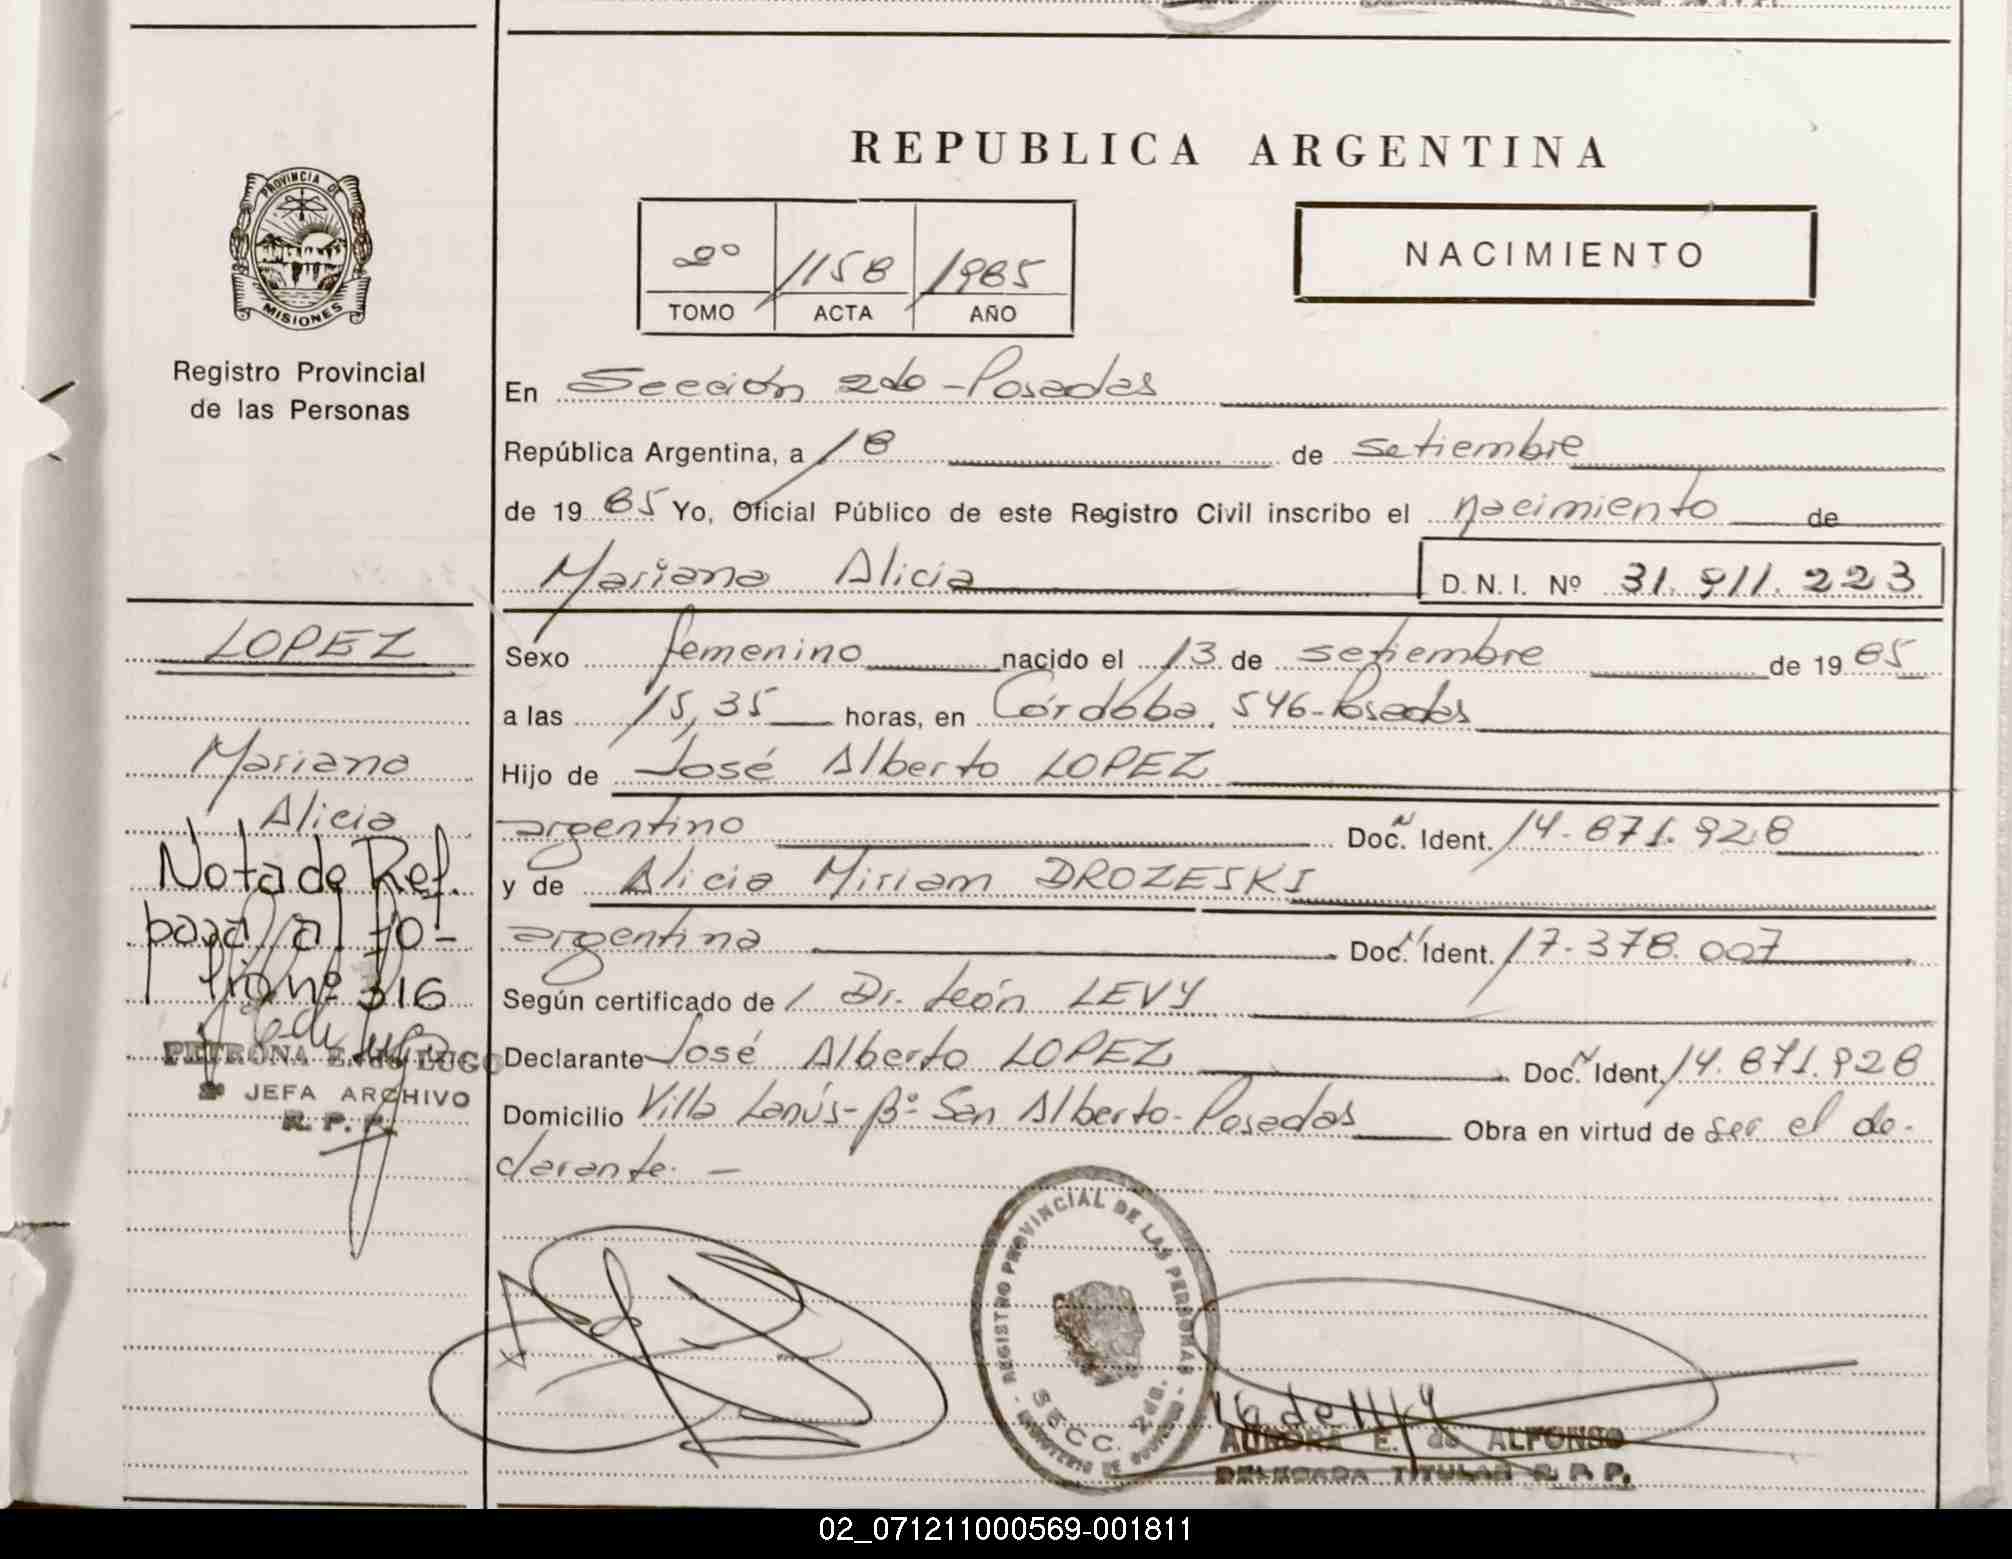 REPUBLICA ARGENTINA
PROVINCIA DE
MISIONES
Registro Provincial
de las Personas
2º 1158 1985
TOMO ACTA AÑO
NACIMIENTO
En Sección 2da - Posadas
República Argentina, a 18 de setiembre
de 1985 Yo, Oficial Público de este Registro Civil inscribo el nacimiento de
Mariana Alicia D. N. I. Nº 31.911.223
LOPEZ
Mariana
Alicia
Nota de Ref.
pasa al fo-
lio nº 316
PETRONA E. de LUGO
JEFA ARCHIVO
R. P. P.
Sexo femenino nacido el 13 de setiembre de 1985
a las 15,35 horas, en Córdoba 546 - Posadas
Hijo de José Alberto LOPEZ
argentino Doc. Ident. 14.871.928
y de Alicia Miriam DROZESKI
argentina Doc. Ident. 17.378.007
Según certificado de Dr. León LEVY
Declarante José Alberto LOPEZ Doc. Ident. 14.871.928
Domicilio Villa Lanús - Bº San Alberto - Posadas Obra en virtud de ser el de-
clarante. -
REGISTRO PROVINCIAL DE LAS PERSONAS
SECC. 2da.
MINISTERIO DE GOBIERNO
AURORA E. de ALFONSO
DELEGADA TITULAR R. P. P.
02_071211000569-001811